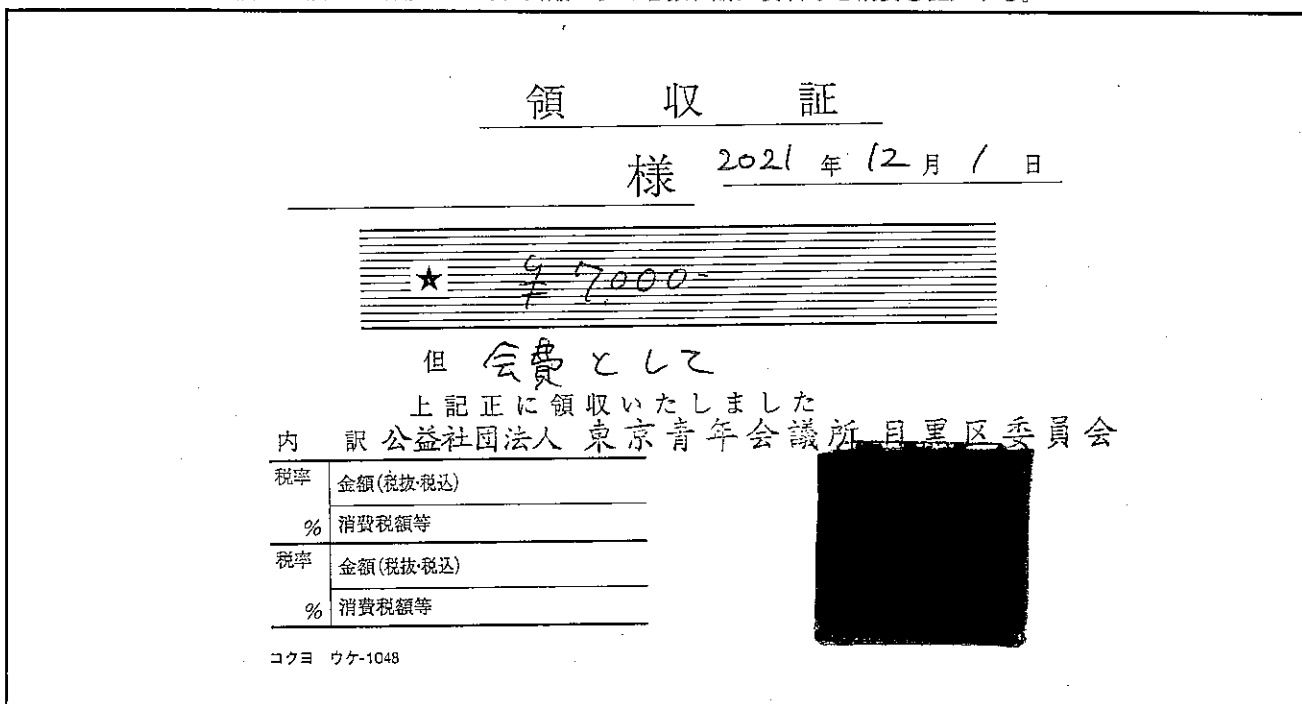 領収証
様 2021年12月1日
★ ¥7,000-
但 会費として
上記正に領収いたしました
内訳 公益社団法人 東京青年会議所 目黒区委員会
税率 金額(税抜・税込)
% 消費税額等
税率 金額(税抜・税込)
% 消費税額等
コクヨ ウケ-1048